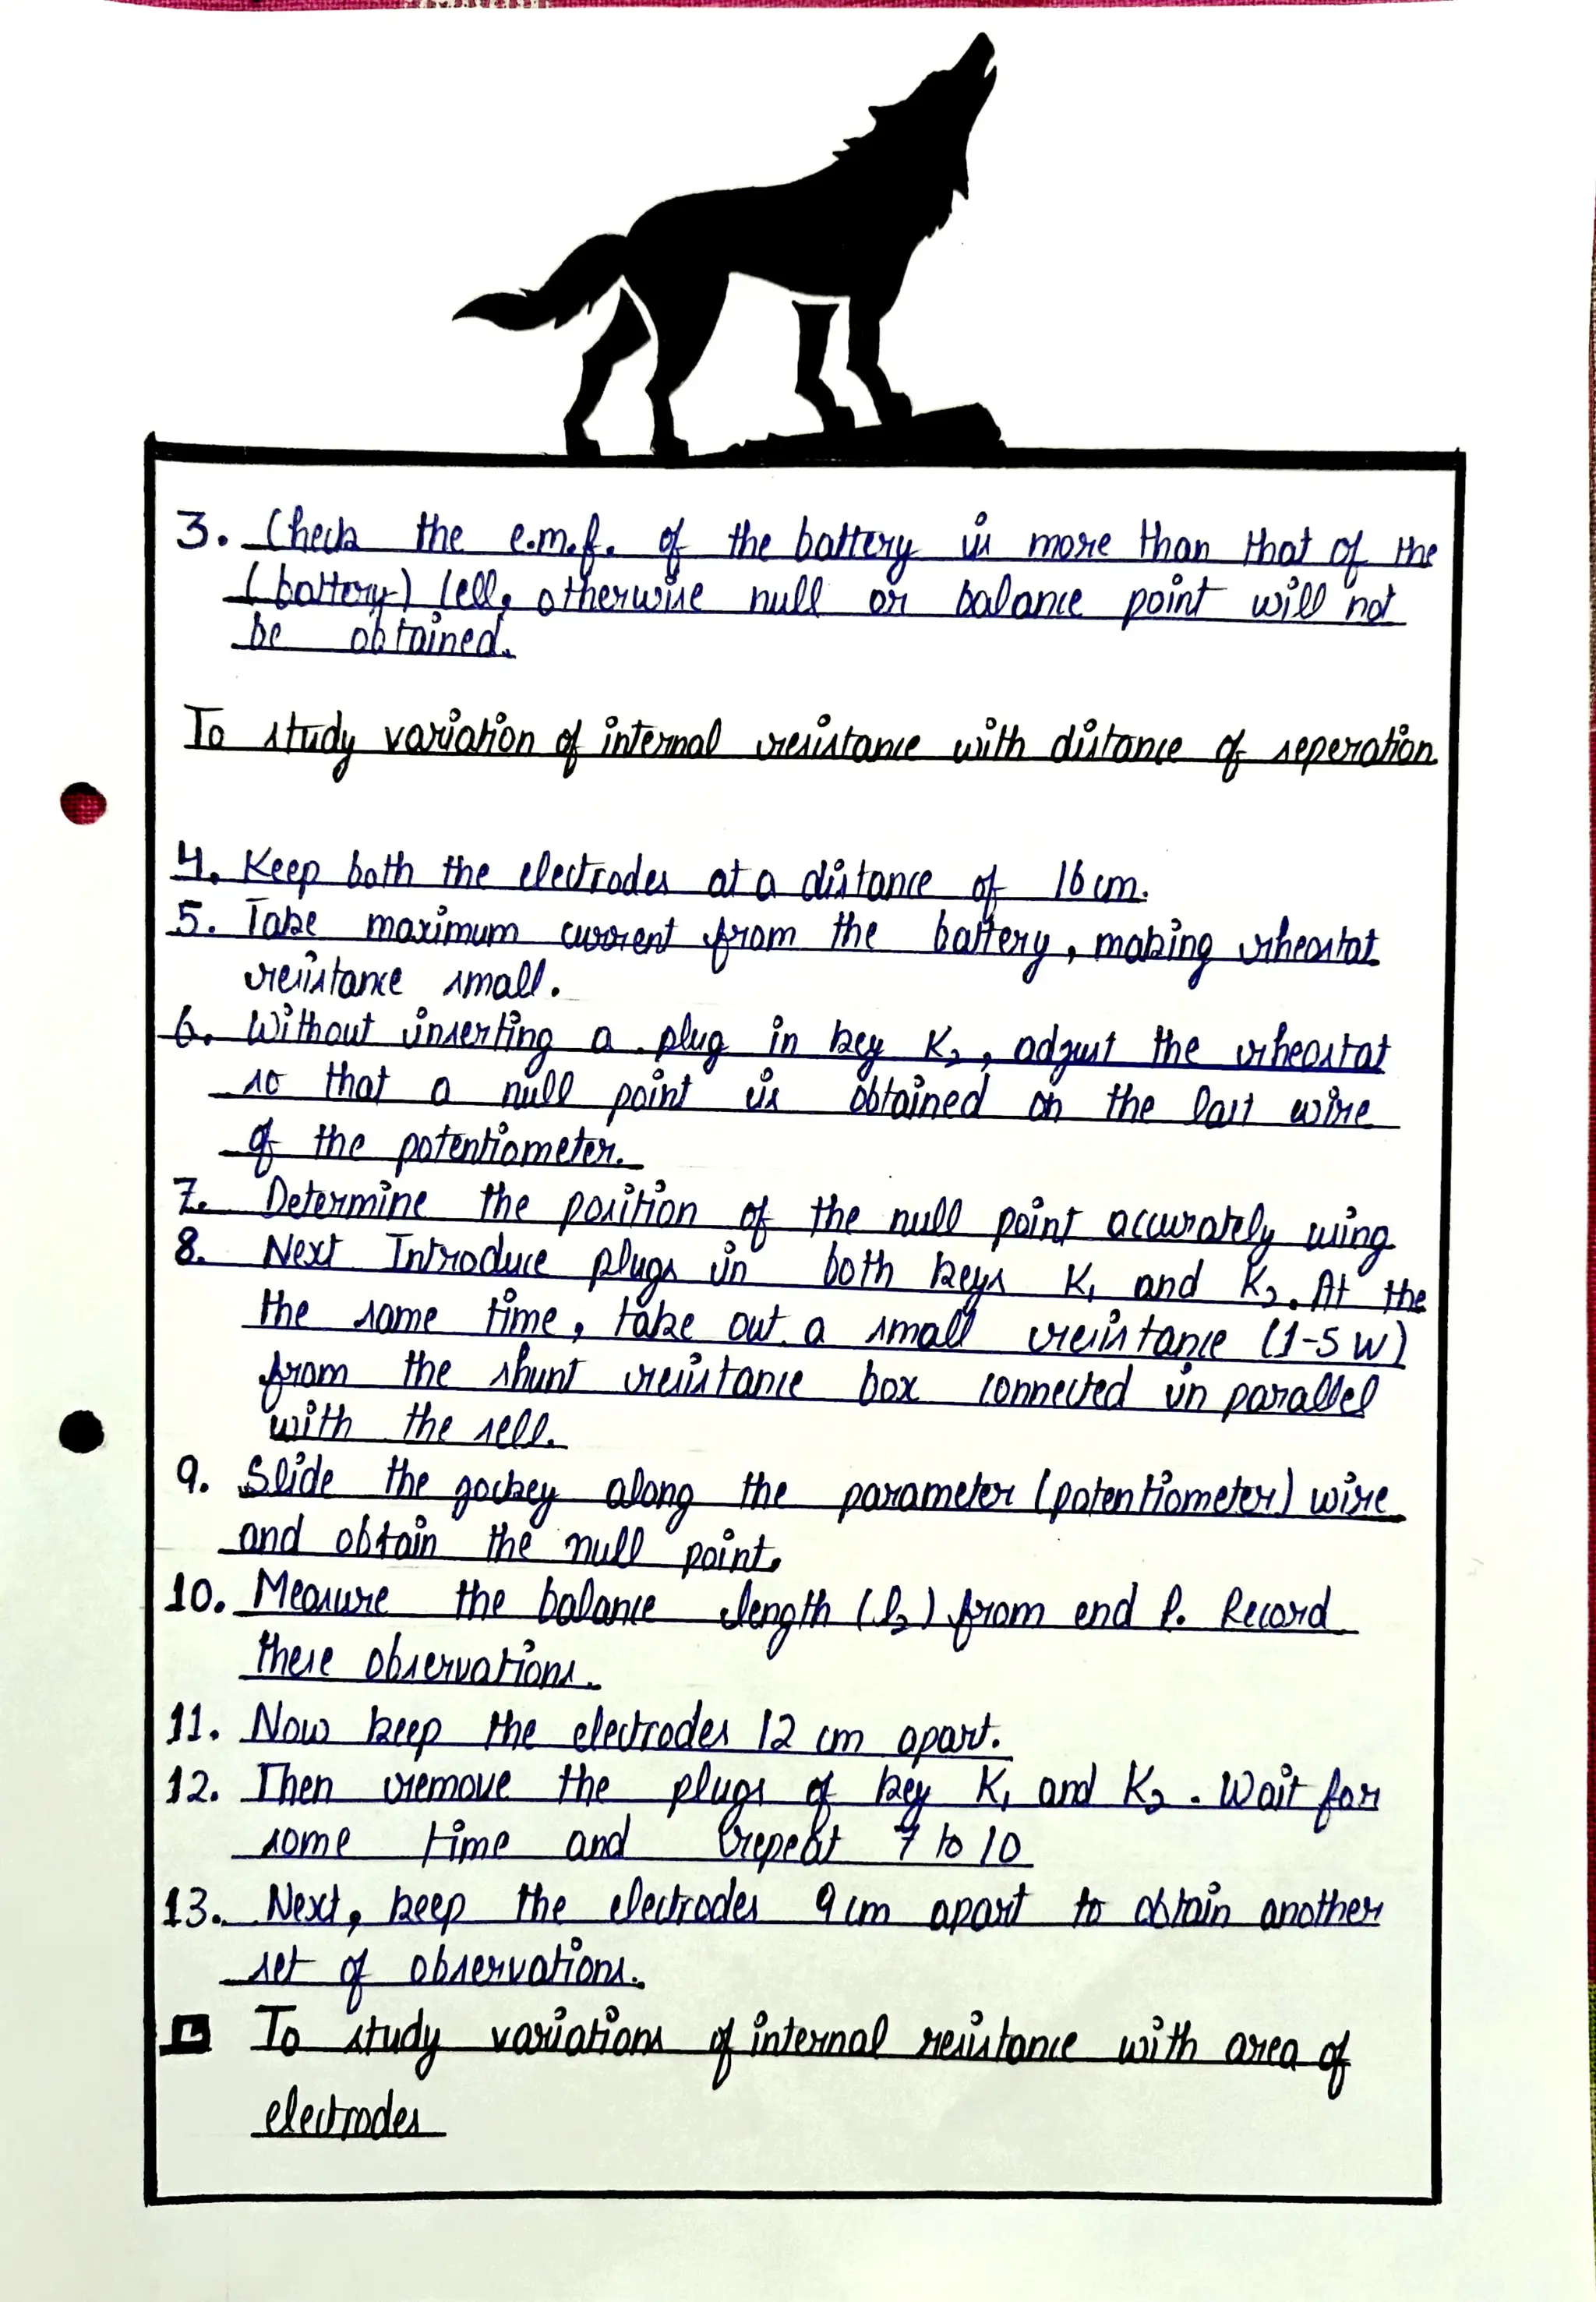 3. Check the e.m.f. of the battery is more than that of the
(battery) cell, otherwise null or balance point will not
be obtained.
To study variation of internal resistance with distance of seperation
4. Keep both the electrodes at a distance of 16 cm.
5. Take maximum current from the battery, making rheostat
resistance small.
6. Without inserting a plug in key K₂, adjust the rheostat
so that a null point is obtained on the last wire
of the potentiometer.
7. Determine the position of the null point accurately using
8. Next Introduce plugs in both keys K₁ and K₂. At the
the same time, take out a small resistance (1-5 W)
from the shunt resistance box connected in parallel
with the sell.
9. Slide the jockey along the parameter (potentiometer) wire
and obtain the null point.
10. Measure the balance length (l₂) from end P. Record
these observations.
11. Now keep the electrodes 12 cm apart.
12. Then remove the plugs of key K₁ and K₂. Wait for
some time and repeat 7 to 10
13. Next, keep the electrodes 9 cm apart to obtain another
set of observations.
To study variations of internal resistance with area of
electrodes